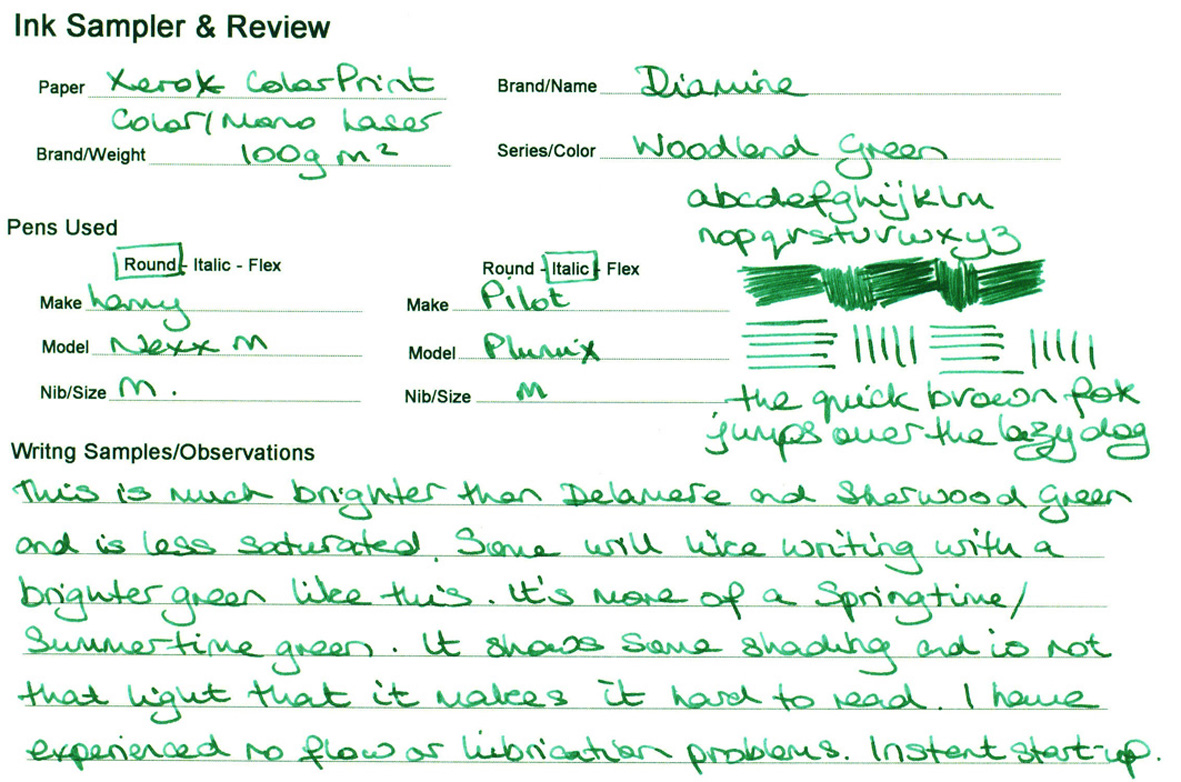 Ink Sampler & Review
Paper Xerox ColorPrint
Color/Mono Laser
Brand/Weight 100g m²
Brand/Name Diamine
Series/Color Woodland Green
abcdefghijklm
nopqrstuvwxyz
Pens Used
Round - Italic - Flex
Make Lamy
Model Nexx M
Nib/Size M.
Round - Italic - Flex
Make Pilot
Model Plumix
Nib/Size M
the quick brown fox
jumps over the lazy dog
Writng Samples/Observations
This is much brighter than Delamere and Sherwood Green
and is less saturated. Some will like writing with a
brighter green like this. It's more of a Springtime/
Summertime green. It shows some shading and is not
that light that it makes it hard to read. I have
experienced no flow or lubrication problems. Instant start-up.